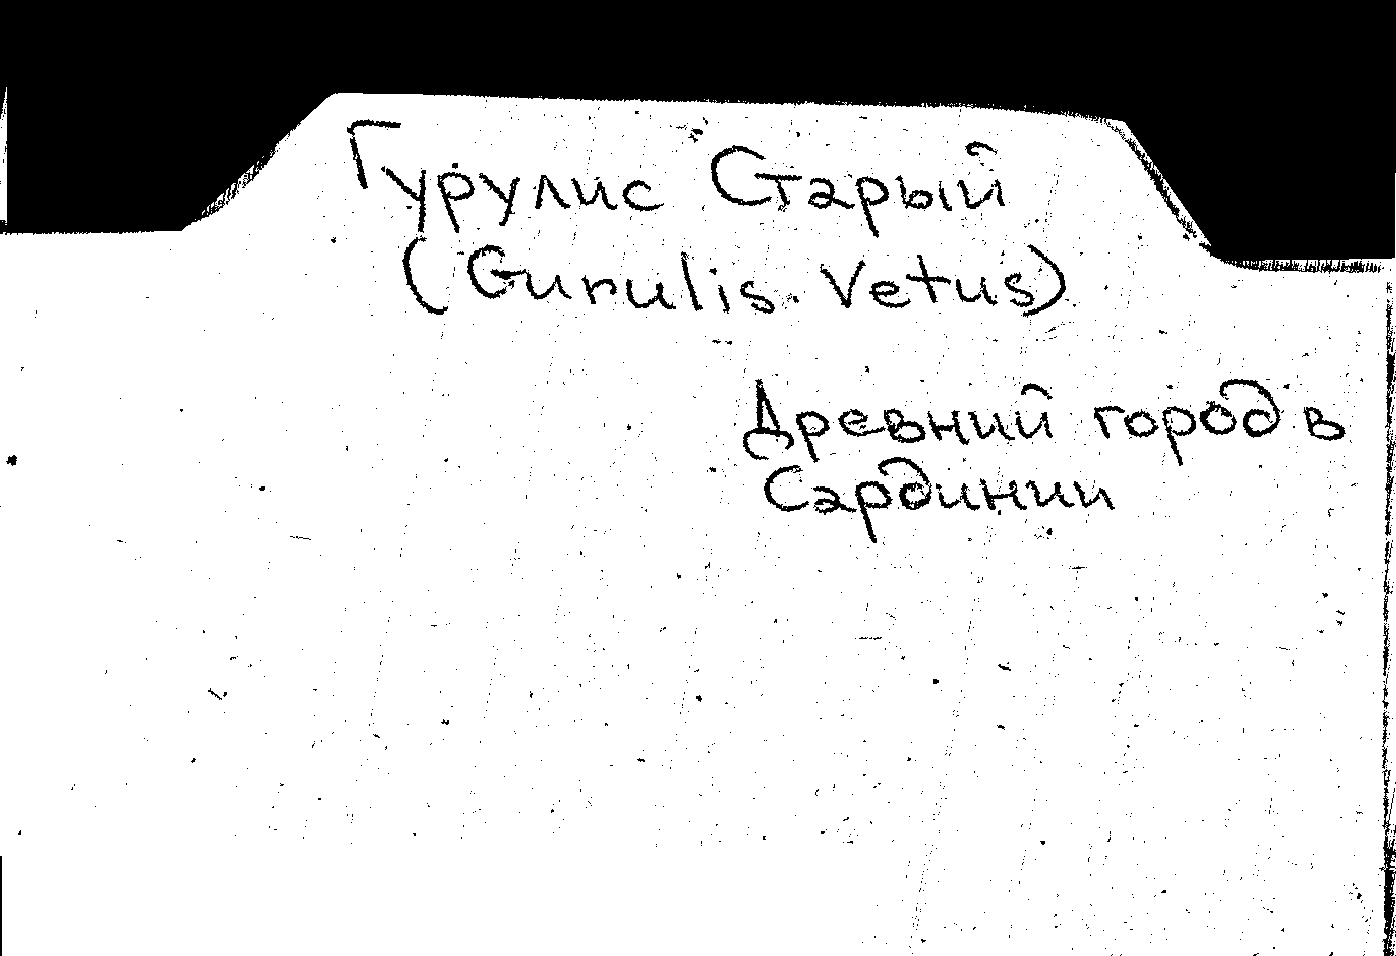 Гурулис Старый
(Gurulis Vetus)
Древний город в
Сардинии